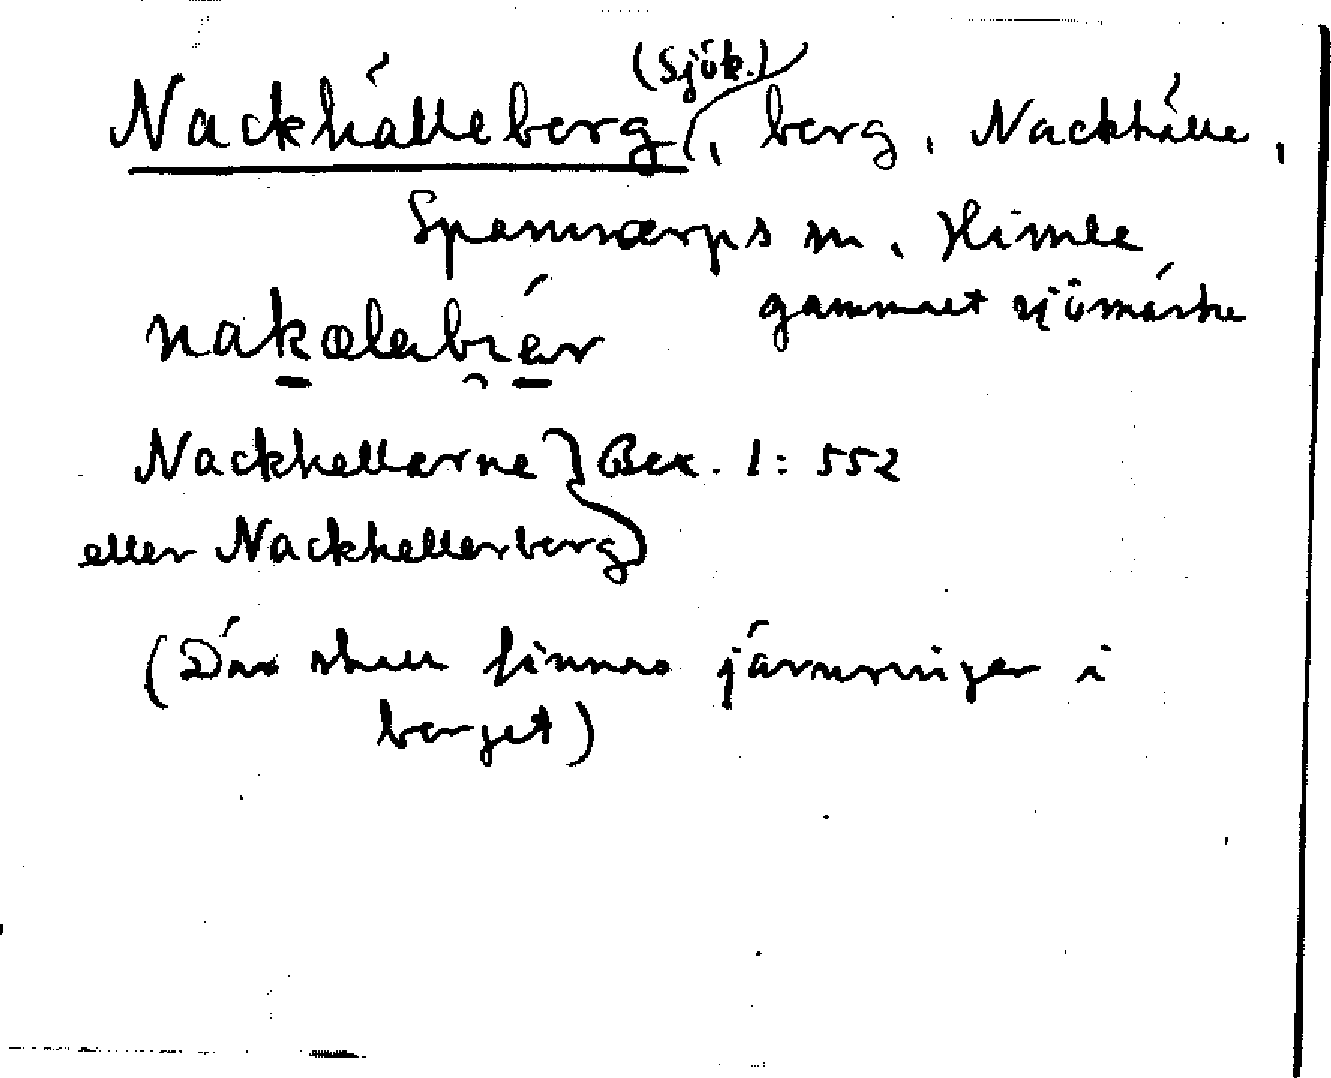 Nackhälleberg (Sjök.), berg, Nackhälle,
Spannarps sn, Himle
gammalt sjömärke
nakælabiär
Nackhellarne } Bex. 1: 552
eller Nackhellerberg
(Där skall finnas järnringar i
berget)